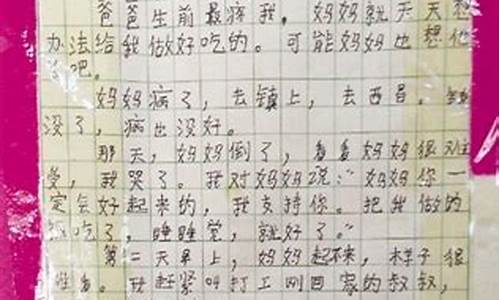 爸爸生前最疼我。妈妈就天天想
办法给我做好吃的。可能妈妈也想他
了吧。
妈妈病了，去镇上，去西昌。钱
没了，病也没好。
那天，妈妈倒了，看看妈妈很难
受，我哭了。我对妈妈说：“妈妈你一
定会好起来的，我支持你。把我做的
饭吃了，睡睡觉，就好了。”
第二天早上，妈妈起不来，样子很
我赶紧叫打工刚回家的叔叔，